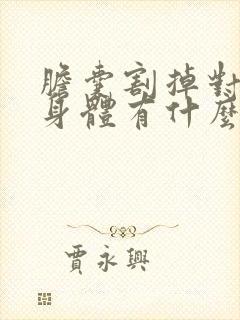 膽囊割掉對
身體有什麼
賈永興